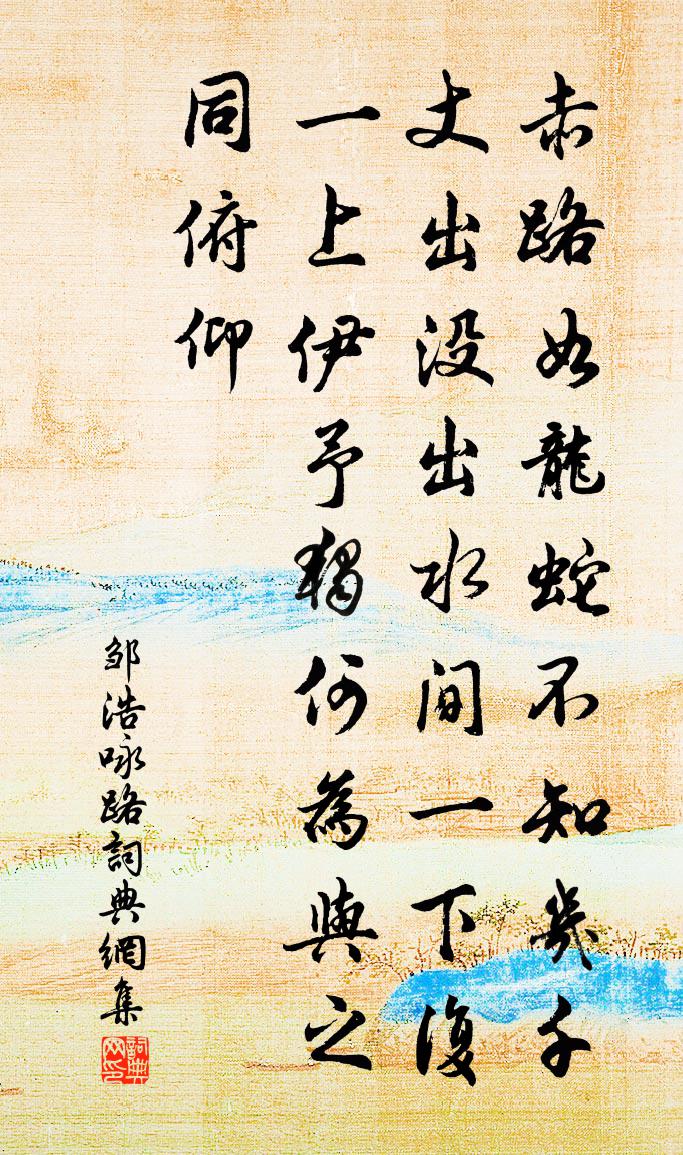 赤路如龍蛇不知幾千
丈出没出水間一下復
一上伊予獨何為與之
同俯仰
邹浩咏路詞典網集
詞典网印